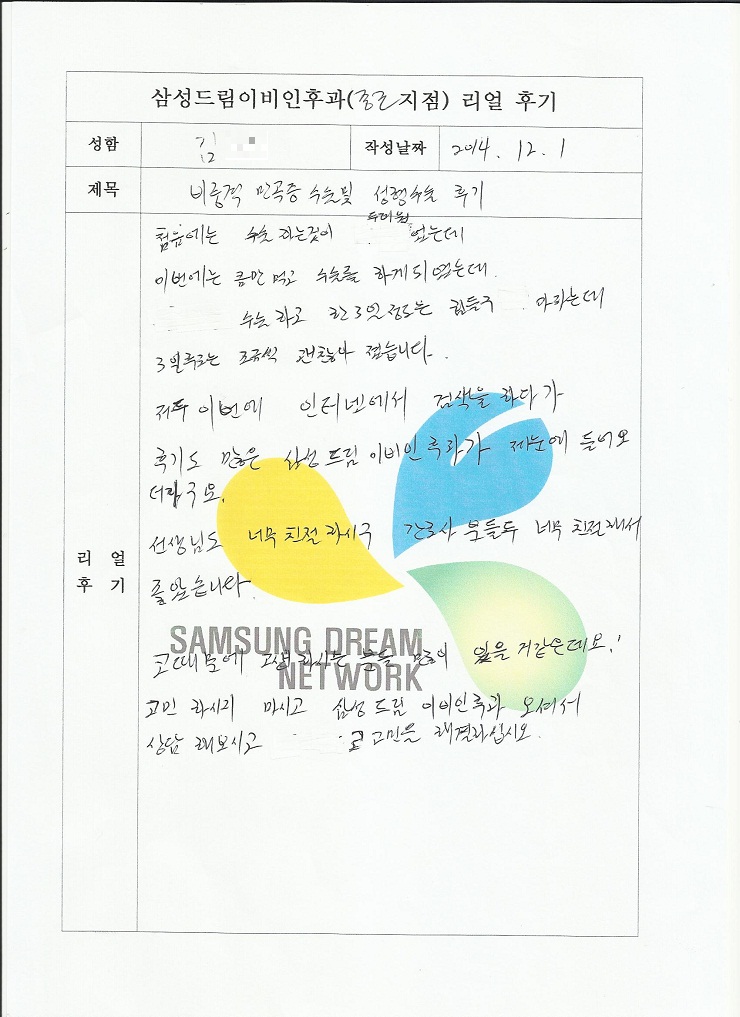 삼성드림이비인후과(종로지점) 리얼 후기
성함 김 작성날짜 2014. 12. 1
제목 비중격 만곡증 수술및 성형수술 후기
첨음에는 수술 하는것이 두려웠 었는데
이번에는 큼만 먹고 수술를 하게되였는데.
수술 하고 한 3일정도는 힘들구 아파는데
3일후로는 조금씩 괜찮아 졌습니다.
저두 이번에 인터넷에서 검색을 하다가
후기도 많은 삼성드림 이비인후과가 제눈에 들어오
더라구요.
선생님도 너무 친절하시구 간호사 분들두 너무 친절해서
좋았습니다.
SAMSUNG DREAM
NETWORK
코때문에 고생하시는 분들 많이 있을 거같은데요!
고민 하시지 마시고 삼성드림 이비인후과 오셔서
상담 해보시고 코 고민을 해결하십시오.
리얼
후기